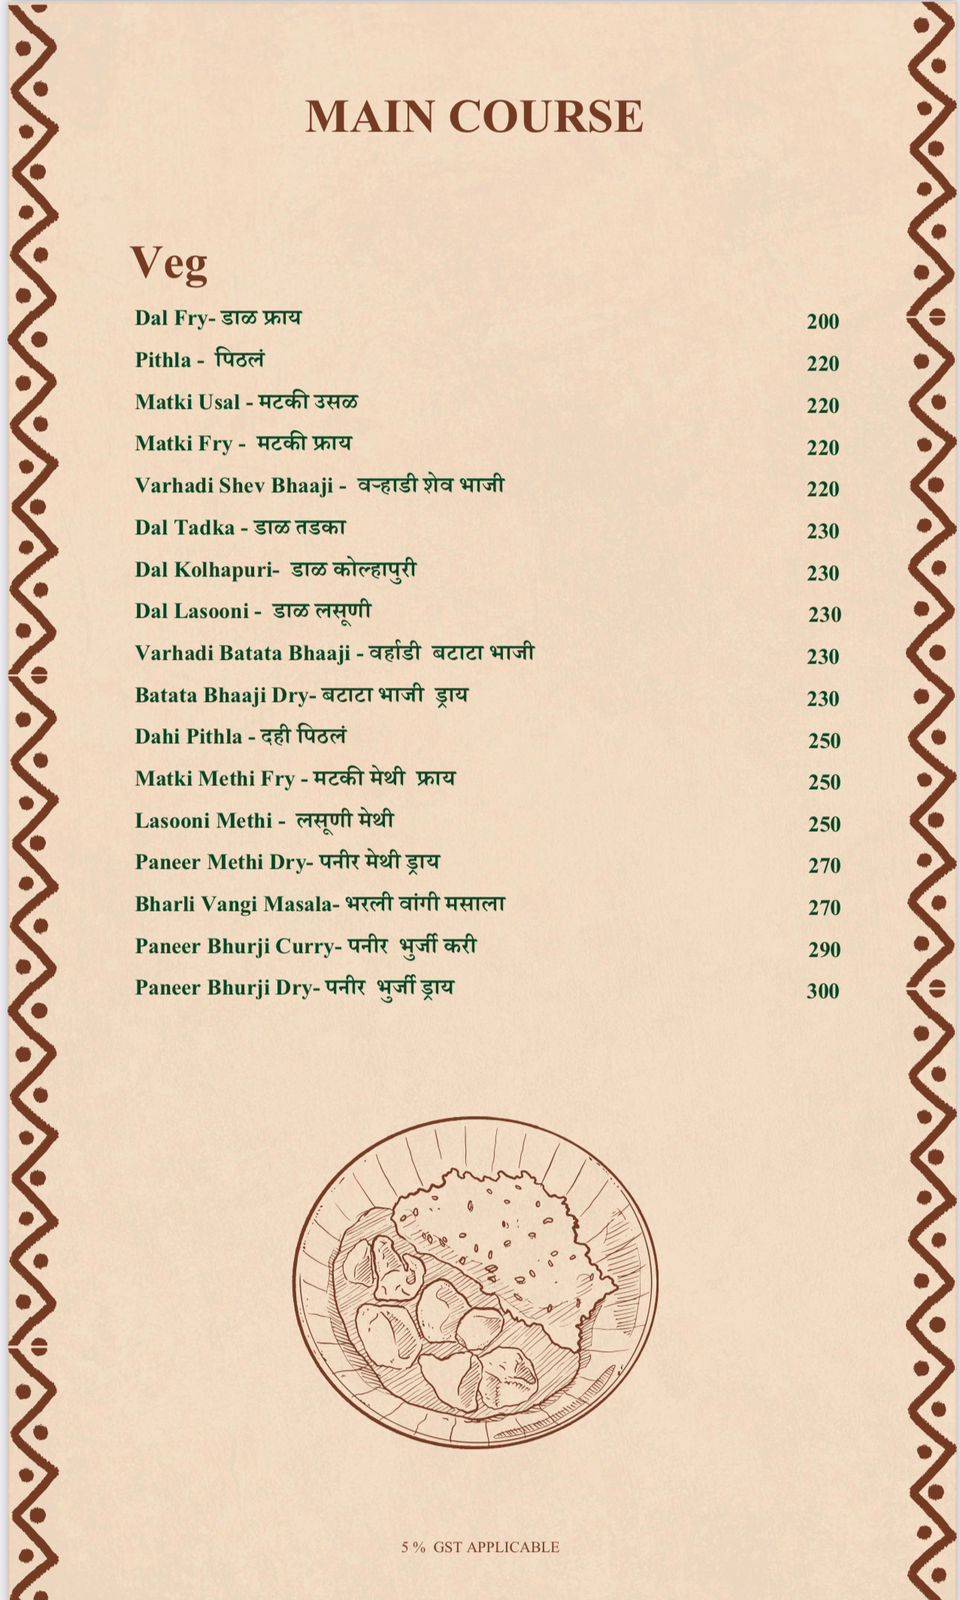 MAIN COURSE
Veg
Dal Fry- डाळ फ्राय 200
Pithla - पिठलं 220
Matki Usal - मटकी उसळ 220
Matki Fry - मटकी फ्राय 220
Varhadi Shev Bhaaji - वऱ्हाडी शेव भाजी 220
Dal Tadka - डाळ तडका 230
Dal Kolhapuri- डाळ कोल्हापुरी 230
Dal Lasooni - डाळ लसूणी 230
Varhadi Batata Bhaaji - वर्हाडी बटाटा भाजी 230
Batata Bhaaji Dry- बटाटा भाजी ड्राय 230
Dahi Pithla - दही पिठलं 250
Matki Methi Fry - मटकी मेथी फ्राय 250
Lasooni Methi - लसूणी मेथी 250
Paneer Methi Dry- पनीर मेथी ड्राय 270
Bharli Vangi Masala- भरली वांगी मसाला 270
Paneer Bhurji Curry- पनीर भुर्जी करी 290
Paneer Bhurji Dry- पनीर भुर्जी ड्राय 300
5 % GST APPLICABLE